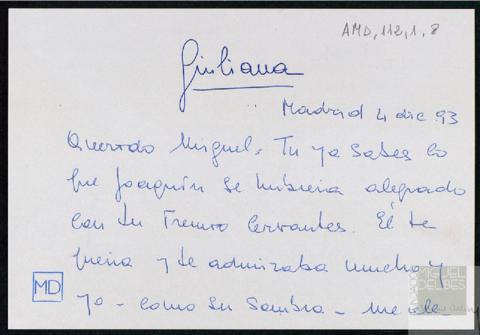 AMD, 112, 1, 8
Giuliana
Madrid 4 dic 93
Querido Miguel: Tu ya sabes lo
que Joaquín se hubiera alegrado
con tu Premio Cervantes. Él te
quería y te admiraba mucho y
yo - como su sombra - me ale
MD
MIGUEL
DELIBES